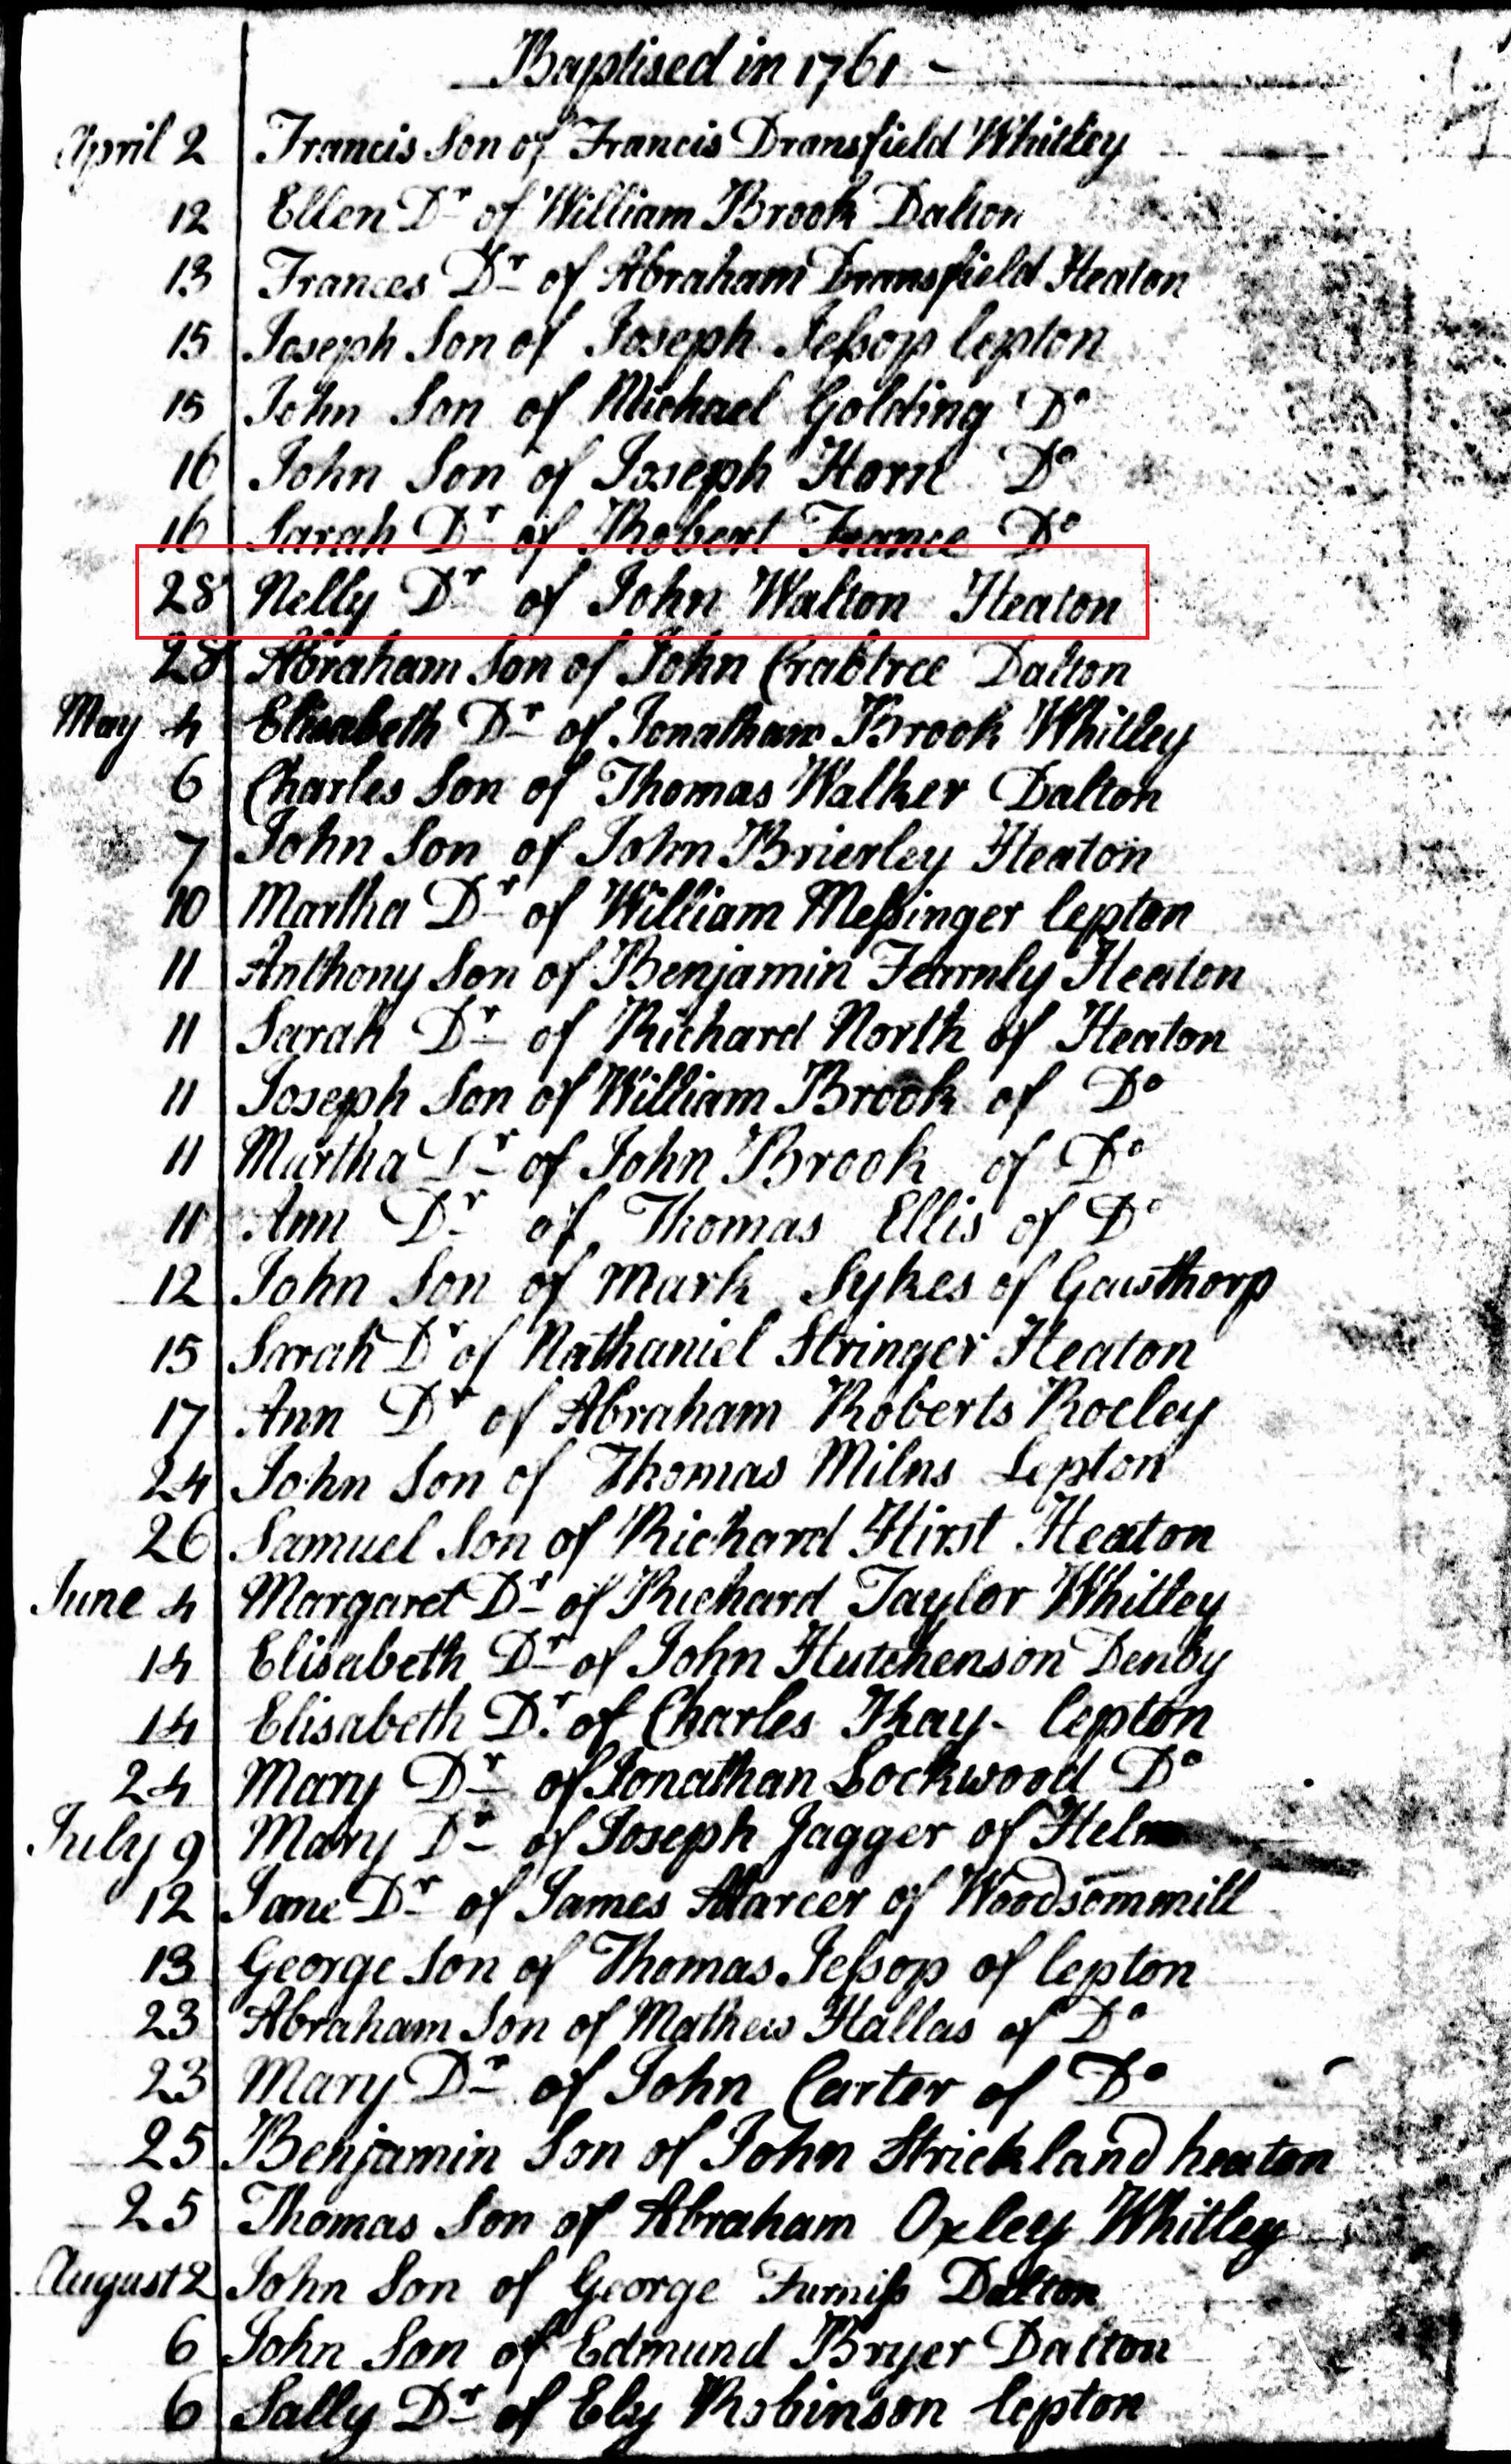 Baptised in 1761 -
April 2 Francis Son of Francis Dransfield Whitley
12 Ellen Dr of William Brook Dalton
13 Frances Dr of Abraham Dransfield Heaton
15 Joseph Son of Joseph Jeſsop lepton
15 John Son of Michael Golding Do
16 John Son of Joseph Horn Do
16 Sarah Dr of Robert France Do
28 Nelly Dr of John Walton Heaton
28 Abraham Son of John Crabtree Dalton
May 4 Elisabeth Dr of Jonathan Brook Whitley
6 Charles Son of Thomas Walker Dalton
7 John Son of John Brierley Heaton
10 Martha Dr of William Meſsinger lepton
11 Anthony Son of Benjamin Fearnly Heaton
11 Sarah Dr of Richard North of Heaton
11 Joseph Son of William Brook of Do
11 Martha Dr of John Brook of Do
11 Ann Dr of Thomas Ellis of Do
12 John Son of Mark Sykes of Gawthorp
15 Sarah Dr of Nathaniel Stringer Heaton
17 Ann Dr of Abraham Roberts Rocley
24 John Son of Thomas Milns Lepton
26 Samuel Son of Richard Hirst Heaton
June 4 Margaret Dr of Richard Taylor Whitley
14 Elisabeth Dr of John Hutchenson Denby
14 Elisabeth Dr. of Charles Kay - lepton
24 Mary Dr of Jonathan Lockwood Do
July 9 Mary Dr of Joseph Jagger of Helm
12 Jane Dr of James Marcer of Woodsommill
13 George Son of Thomas Jeſsop of lepton
23 Abraham Son of Mathew Hallas of Do
23 Mary Dr of John Carter of Do
25 Benjamin Son of John Strickland heaton
25 Thomas Son of Abraham Oxley Whitley
August 2 John Son of George Furniſs Dalton
6 John Son of Edmund Bryer Dalton
6 Sally Dr of Ely Robinson lepton